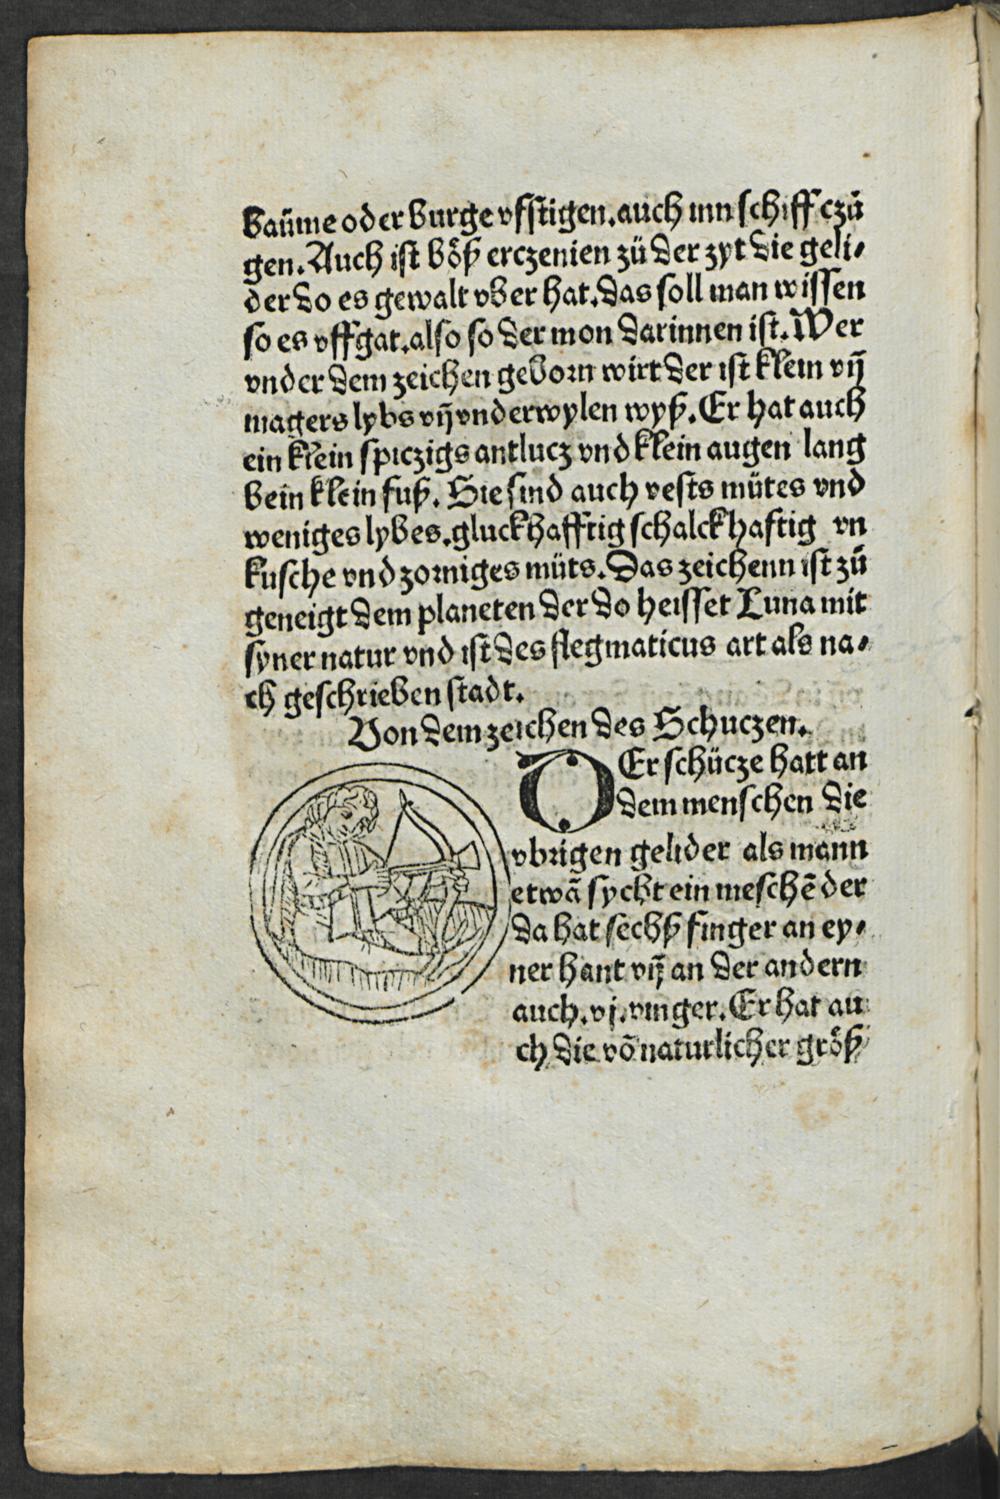 baüme oder burge vfstigen.auch inn schiff czü
gen.Auch ist böß erczenien zü der zyt die geli⸗
der do es gewalt vber hat.das soll man wissen
so es vffgat.also so der mon darinnen ist.Wer
vnder dem zeichen geborn wirt der ist klein vn̄
magers lybs vn̄ vnderwylen wyß.Er hat auch
ein klein spiczigs antlucz vnd klein augen lang
bein klein fuß. Sie sind auch vests mütes vnd
weniges lybes.gluckhafftig schalckhaftig vn
kusche vnd zorniges müts.Das zeichenn ist zü
geneigt dem planeten der do heisset Luna mit
syner natur vnd ist des flegmaticus art als na⸗
ch geschrieben stadt.
Von dem zeichen des Schuczen.
DEr schücze hatt an
dem menschen die
vbrigen gelider als mann
etwā sycht ein meschē der
da hat sechß finger an ey⸗
ner hant vn̄ an der andern
auch.vj.vinger.Er hat au
ch die vō naturlicher größ